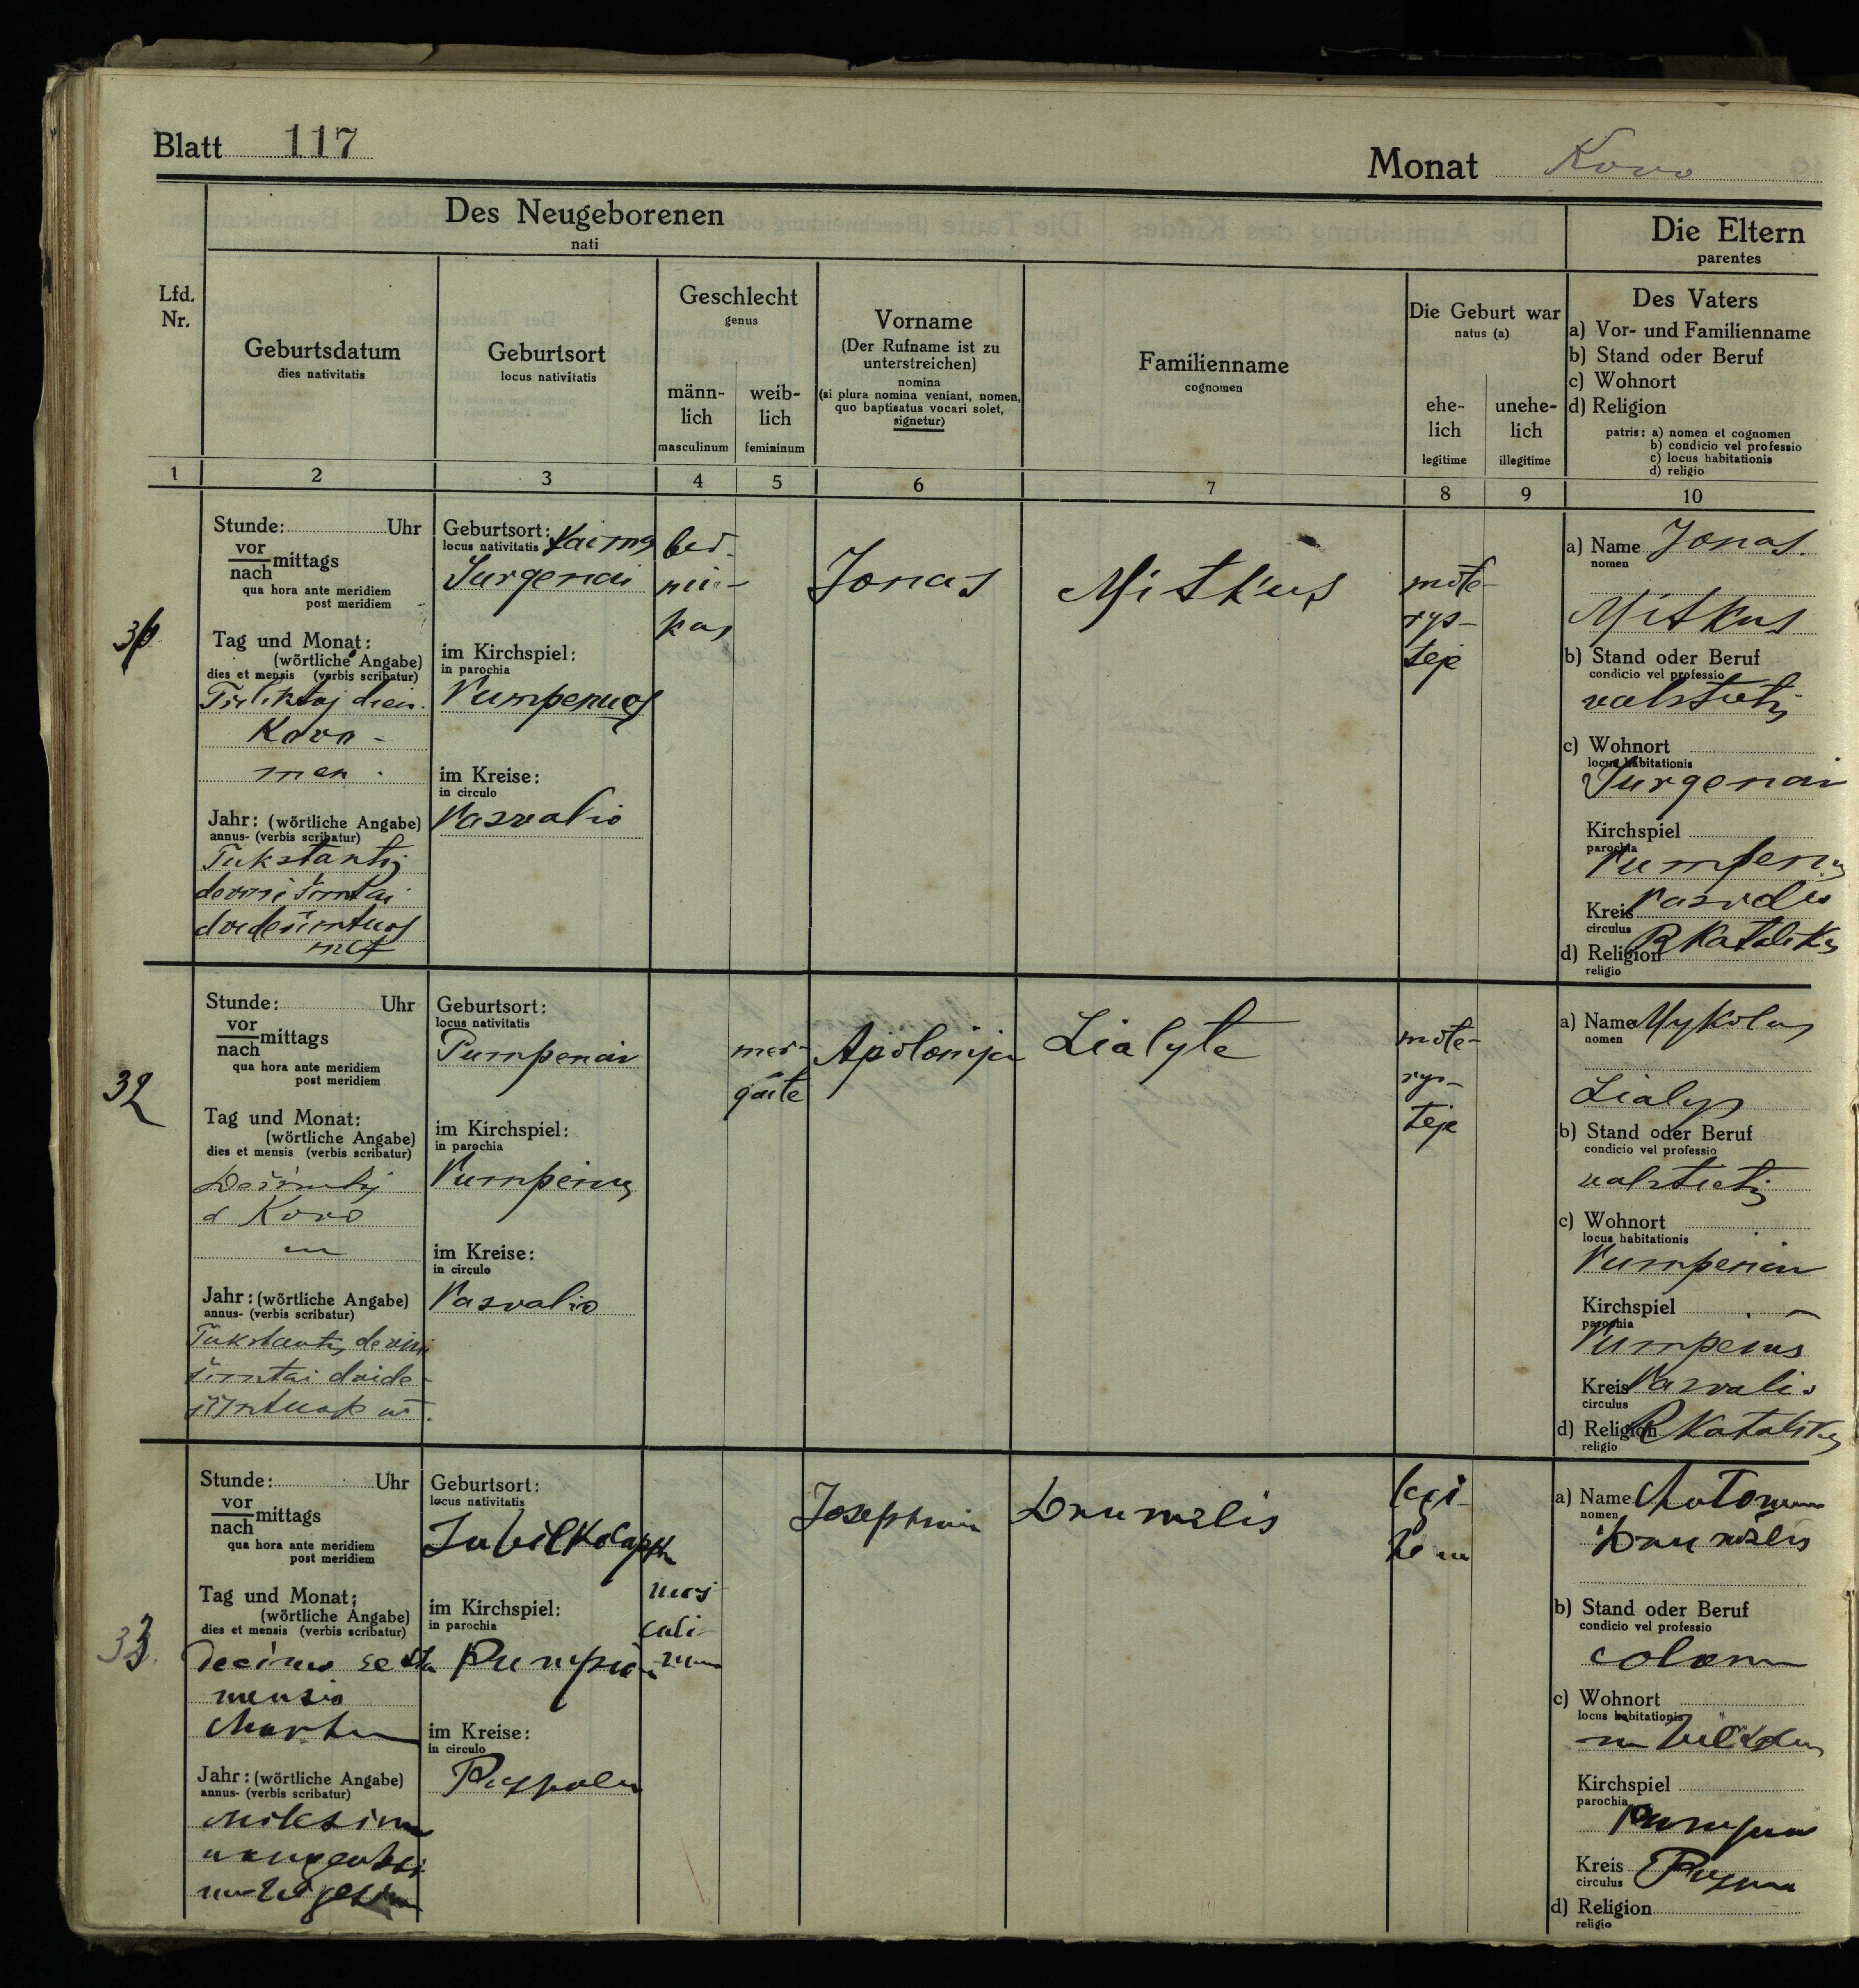 Blatt 117
Monat Kovo
Des Neugeborenen
nati
Die Eltern
parentes
Lfd.
Nr.
Geburtsdatum
dies nativitatis
Geburtsort
locus nativitatis
Geschlecht
genus
männ-
lich
masculinum
weib-
lich
femininum
Vorname
(Der Rufname ist zu
unterstreichen)
nomina
(si plura nomina veniant, nomen,
quo baptisatus vocari solet,
signetur)
Familienname
cognomen
Die Geburt war
natus (a)
ehe-
lich
legitime
unehe-
lich
illegitime
Des Vaters
a) Vor- und Familienname
b) Stand oder Beruf
c) Wohnort
d) Religion
patris: a) nomen et cognomen
b) condicio vel professio
c) locus habitationis
d) religio
1 2 3 4 5 6 7 8 9 10
Stunde: Uhr
vor
nach mittags
qua hora ante meridiem
post meridiem
Tag und Monat:
(wörtliche Angabe)
dies et mensis (verbis scribatur)
Kovo -
men.
Jahr: (wörtliche Angabe)
annus- (verbis scribatur)
Tukstantis
devini šimtai
dvidešimtuos
met
Geburtsort: Kaimas
locus nativitatis
Jurgenai
im Kirchspiel:
in parochia
Pumpenuos
im Kreise:
in circulo
Pasvalio
ber-
niu-
kas
Jonas
Mitkus
mote-
rys-
teje
a) Name Jonas.
nomen
Mitkus
b) Stand oder Beruf
condicio vel professio
valstietis
c) Wohnort
locus habitationis
Jurgenai
Kirchspiel
parochia
Pumpenu
Kreis Pasvalio
circulus
d) Religion R Katalikas
religio
32
Stunde: Uhr
vor
nach mittags
qua hora ante meridiem
post meridiem
Tag und Monat:
(wörtliche Angabe)
dies et mensis (verbis scribatur)
Dešimtij
d Kovo
m
Jahr: (wörtliche Angabe)
annus- (verbis scribatur)
Tukstantis devini
šimtai dvide-
šimtuos m.
Geburtsort:
locus nativitatis
Pumpenai
im Kirchspiel:
in parochia
Pumpenu
im Kreise:
in circulo
Pasvalio
mer-
gaite
Apolonija
Lialyte
mote-
rys-
teje
a) Name Mykolas
nomen
Lialys
b) Stand oder Beruf
condicio vel professio
valstietis
c) Wohnort
locus habitationis
Pumpenai
Kirchspiel
parochia
Pumpenu
Kreis Pasvalio
circulus
d) Religion R Katalikas
religio
33.
Stunde: Uhr
vor
nach mittags
qua hora ante meridiem
post meridiem
Tag und Monat:
(wörtliche Angabe)
dies et mensis (verbis scribatur)
Decimo sexta
mensis
Martii
Jahr: (wörtliche Angabe)
annus- (verbis scribatur)
Millesimo
nongentesi
mo vigesimo
Geburtsort:
locus nativitatis
im Kirchspiel:
in parochia
im Kreise:
in circulo
mas-
culi-
num
Daunoris
legi-
a) Name Antonius
nomen
b) Stand oder Beruf
condicio vel professio
colonus
c) Wohnort
locus habitationis
Kirchspiel
parochia
Kreis
circulus
d) Religion
religio